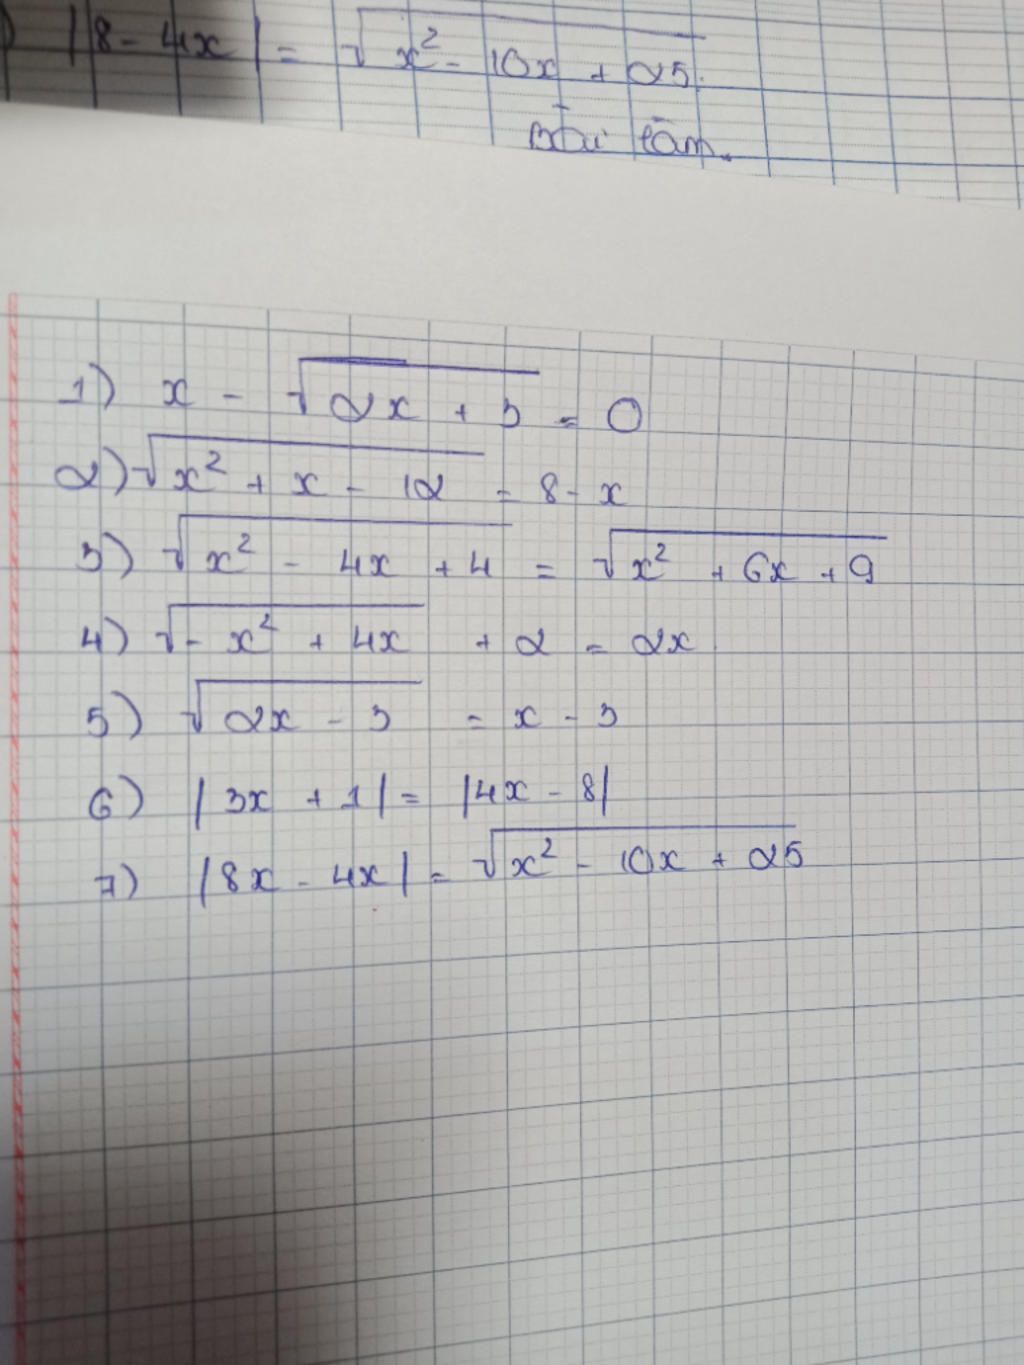 ) |8 - 4x| = √x² - 10x + 25.
Bài làm.
1) x - √2x + 3 = 0
2) √x² + x - 12 = 8 - x
3) √x² - 4x + 4 = √x² + 6x + 9
4) √-x² + 4x + 2 = 2x
5) √2x - 3 = x - 3
6) |3x + 1| = |4x - 8|
7) |8x - 4x| = √x² - 10x + 25